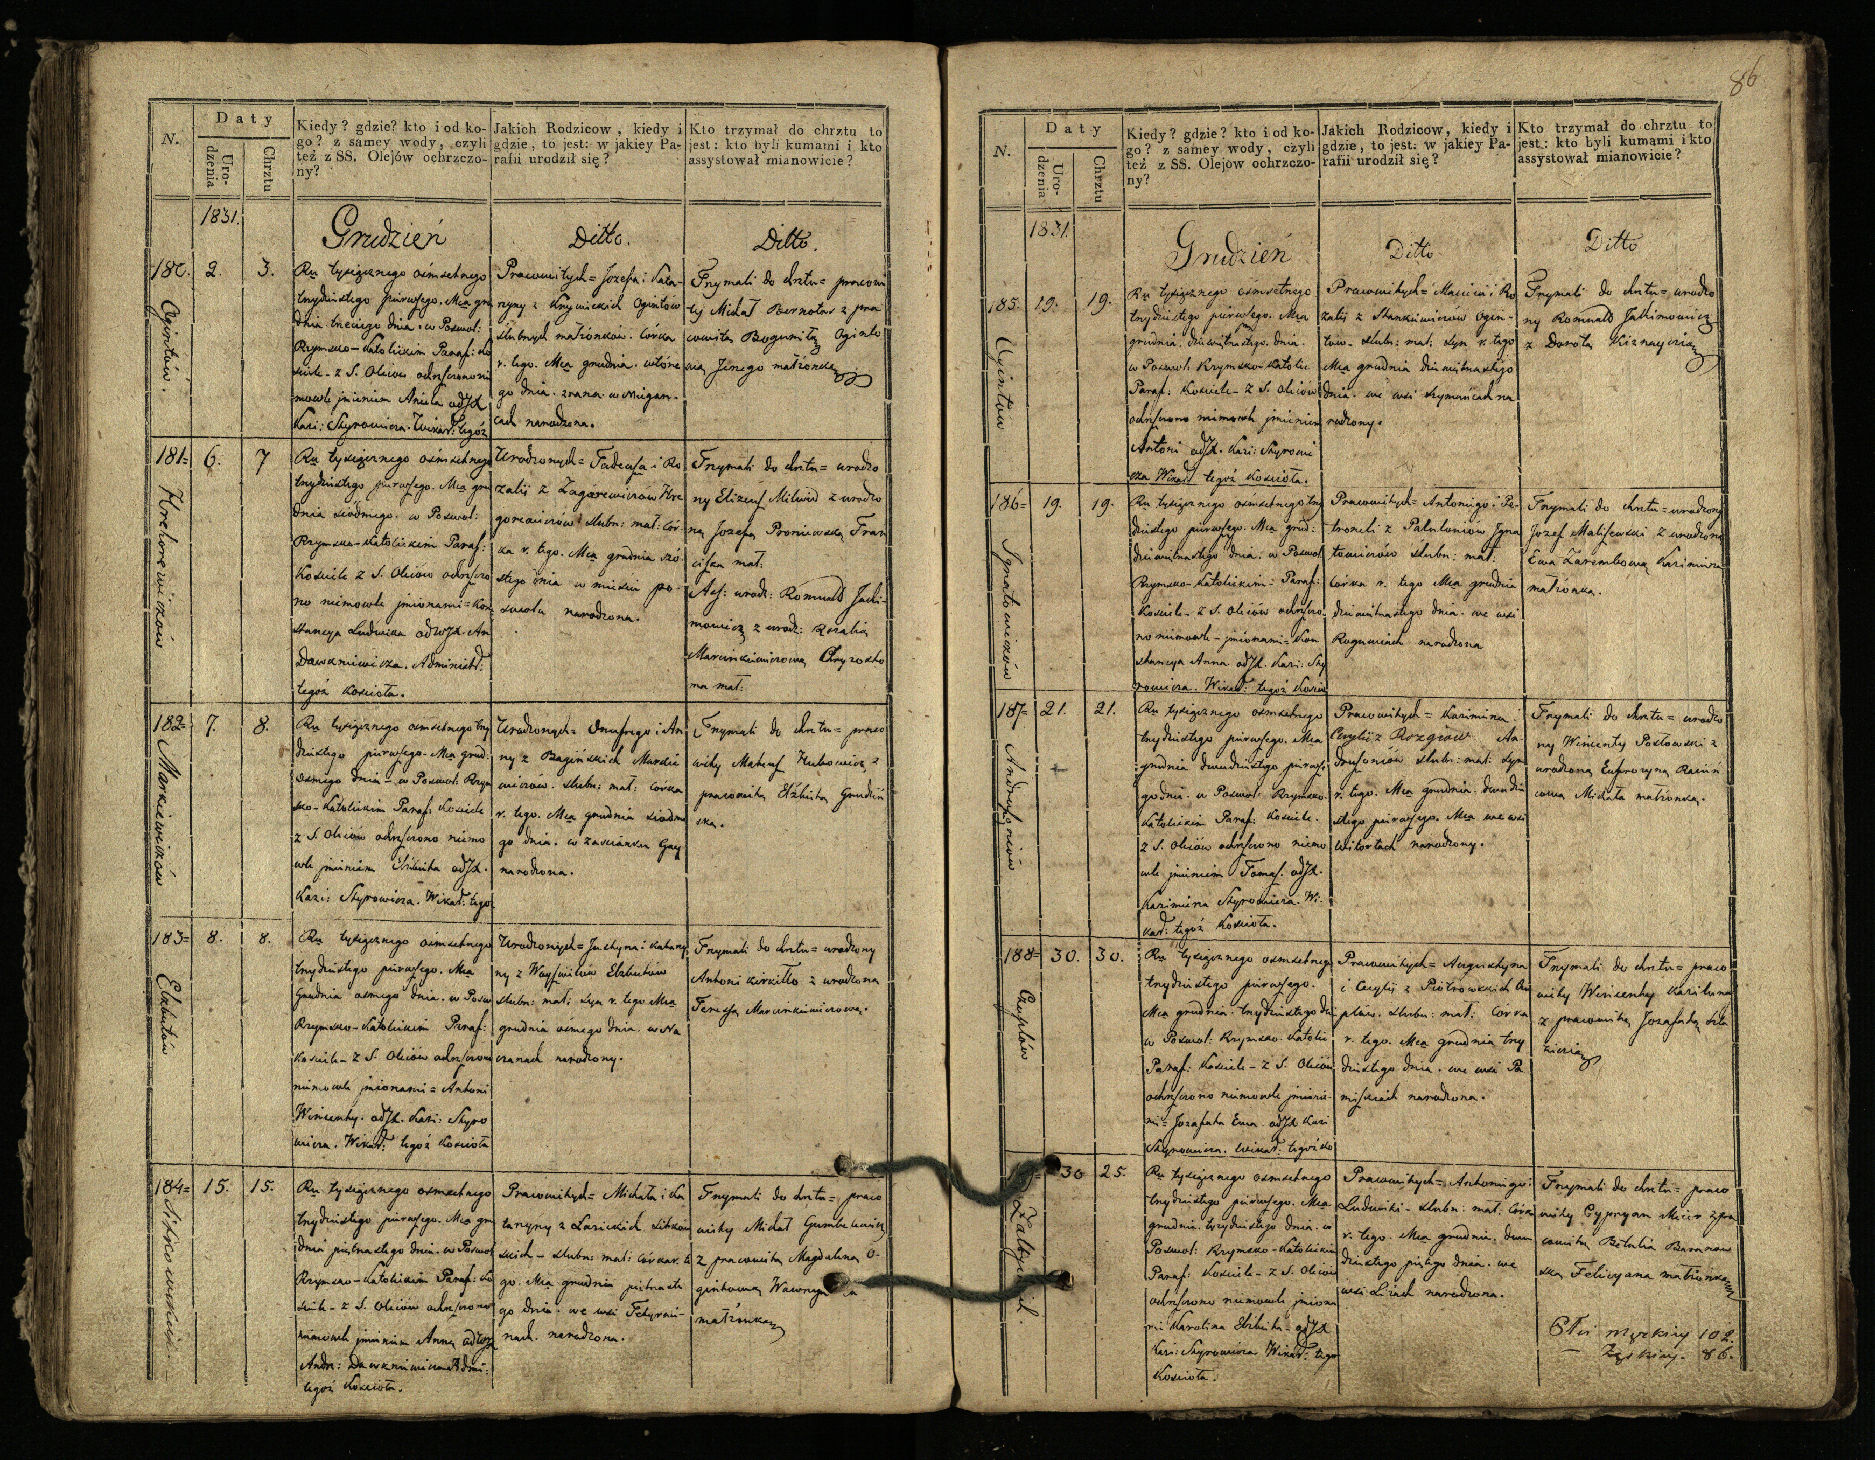 N.
Daty
Urodzenia
Chrztu
Kiedy? gdzie? kto i od ko-
go? z samey wody, czyli
też z SS. Olejów ochrzczo-
ny?
Jakich Rodzicow, kiedy i
gdzie, to jest: w jakiey Pa-
rafii urodził się?
Kto trzymał do chrztu to
jest: kto byli kumami i kto
assystował mianowicie?
1831.
Grudzień
Ditto.
Ditto.
180. 2. 3.
Ogintów
Ru tysiącznego ośmsetnego
trzydziestego pierwszego. Mca gru
dnia trzeciego dnia. w Poswol:
Rzymsko-Katolickim Paraf: Ko
ściele z S. Oleiów ochrzczono nie
mowle imieniem Aniela od JX
Kazi: Skyrowicza. Wikar: tegóż
Pracowitych = Jozefa i Kata-
rzyny z Ogintów
ślubnych małżonków. Córka
r. tego. Mca grudnia. wtóre
go dnia. zrana w
narodzona.
Trzymali do chrztu = pracowi
ty Michał z pra
cowitą Bogumiłą Oginto
wą Jerzego małżonką
181 = 6. 7
Hrehorewiczów
Ru tysiącznego ośmsetnego
trzydziestego pierwszego. Mca gru
dnia siódmego. w Poswol:
Rzymsko-Katolickim Paraf:
Kościele z S. Oleiów ochrzczo
no niemowle imionami = Kon
stancya Ludwika od WJX. An
Dawkniewicza. Administ:
tegóż Kościoła.
Urodzonych = Tadeusza i Ro
zalii z Zagórewiczów Hre
gorewiczów ślubn: mał: Cór
ka r. tego. Mca grudnia szó
stego dnia w mieście Po-
swolu narodzona.
Trzymali do chrztu = urodzo
ny Elizeusz Milwid z urodzo
ną Jozefą Proniewską Fran
ciszka mał.
Ass: urodz: Romuald Jachi-
mowicz z urodz: Rozalią
Marcinkiewiczową Chryzosto
ma mał:
182 = 7. 8.
Markiewiczów
Ru tysiącznego ośmsetnego trzy
dziestego pierwszego. Mca grud:
ósmego dnia - w Poswol: Rzym
sko-Katolickim Paraf: Kościele
z S. Oleiów ochrzczono niemo
wle imieniem Elżbieta od JX.
Kazi: Skyrowicza. Wikar: tego
Urodzonych = Onufrego i An
ny z Bagińskich Markie
wiczów. ślubn: mał: Córka
r. tego. Mca grudnia siódme
go dnia. w zaścianku
narodzona.
Trzymali do chrztu = praco
wity Mateusz z
pracowitą Elżbietą Grudziń
ską.
183 = 8. 8.
Elzbutów
Ru tysiącznego ośmsetnego
trzydziestego pierwszego. Mca
Grudnia ósmego dnia. w Posw
Rzymsko-Katolickim Paraf:
Kościele - z S. Oleiów ochrzczono
niemowle imionami = Antoni
Wincenty. od JX. Kazi: Skyro
wicza. Wikar: tegóż Kościoła
Urodzonych = Justyna i Katarzy
ny z Elzbutów
ślubn: mał: syn r. tego Mca
grudnia ósmego dnia. w Na
narodzony.
Trzymali do chrztu = urodzony
Antoni Kirkiłło z urodzoną
Teressą Marcinkiewiczową.
184 = 15. 15.
Ru tysiącznego ośmsetnego
trzydziestego pierwszego. Mca gru
dnia piętnastego dnia. w Poswol
Rzymsko-Katolickim Paraf. Ko
ściele - z S. Oleiów ochrzczono
niemowle imieniem Anna od WJX
Andr: Dawkniewicza Admi:
tegóż Kościoła.
Pracowitych = Michała i Ka
tarzyny z Łazickich
skich - ślubn: mał: Córka r. te
go. Mca grudnia piętnaste
go dnia. we wsi
narodzona.
Trzymali do chrztu = praco
wity Michał
z pracowitą Magdaleną O-
gintową
małżonką
86
N.
Daty
Urodzenia
Chrztu
Kiedy? gdzie? kto i od ko-
go? z samey wody, czyli
też z SS. Olejów ochrzczo-
ny?
Jakich Rodzicow, kiedy i
gdzie, to jest: w jakiey Pa-
rafii urodził się?
Kto trzymał do chrztu to
jest: kto byli kumami i kto
assystował mianowicie?
1831.
Grudzień
Ditto
Ditto
185. 19. 19.
Ogintów
Ru tysiącznego ośmsetnego
trzydziestego pierwszego. Mca
grudnia, dziewiętnastego. dnia.
w Poswol: Rzymsko-Katolic
Paraf: Kościele - z S. Oleiów
ochrzczono niemowle imieniem
Antoni od JX. Kazi: Skyrowi
cza Wikar: tegóż Kościoła.
Pracowitych = Macieia i Ro
zalii z Stankiewiczów Ogin-
tów - ślubn: mał: syn r. tego
Mca grudnia dziewiętnastego
dnia. we wsi Szymańcach na
rodzony.
Trzymali do chrztu = urodzo
ny Romuald Jachimowicz
z Dorotą
186 = 19. 19.
Ignatowiczów
Ru tysiącznego ośmsetnego trzy
dziestego pierwszego. Mca grud:
dziewiętnastego dnia. w Poswol
Rzymsko-Katolickim: Paraf:
Kościele - z S. Oleiów ochrzczo
no niemowle - imionami = Kon
stancya Anna od JX. Kazi: Sky
rowicza. Wikar: tegóż Kościoła
Pracowitych = Antoniego i Pe-
troneli z Igna
towiczów ślubn: mał:
Córka r. tego Mca grudnia
dziewiętnastego dnia. we wsi
narodzona
Trzymali do chrztu = urodzony
Jozef Maliszewski z urodzoną
Ewą Zarembową Kazimirza
małżonką.
187 = 21. 21.
Andruszoniów
Ru tysiącznego ośmsetnego
trzydziestego pierwszego. Mca
grudnia dwudziestego pierwsz
go dnia. w Poswol: Rzymsko-
Katolickim Paraf: Kościele.
z S. Oleiów ochrzczono niemo
wle imieniem Tomasz. od JX.
Kazimirza Skyrowicza. Wi-
kar: tegóż Kościoła.
Pracowitych = Kazimirza i
Cecylii z An
druszoniów ślubn: mał: syn
r. tego. Mca grudnia. dwudzie
stego pierwszego. Mca we wsi
narodzony.
Trzymali do chrztu = urodzo
ny Wincenty Posłowski z
urodzoną Eufrozyną
Michała małżonką.
188 = 30. 30.
Ru tysiącznego ośmsetnego
trzydziestego pierwszego.
Mca grudnia. trzydziestego dni
w Poswol: Rzymsko-Katolic
Paraf: Kościele - z S. Oleiów
ochrzczono niemowle imiona-
mi = Jozefata Ewa. od JX Kazi
Skyrowicza. Wikar: tegóż Ko
Pracowitych = Augustyna
i Cecylii z Piotrowskich
ślubn: mał: Córka
r. tego. Mca grudnia trzy
dziestego dnia. we wsi
narodzona.
Trzymali do chrztu = praco
wity Wincenty
z pracowitą Jozefatą
30 25.
Ru tysiącznego ośmsetnego
trzydziestego pierwszego. Mca
grudnia. trzydziestego dnia. w
Poswol: Rzymsko-Katolickim
Paraf: Kościele - z S. Oleiów
ochrzczono niemowle imiona
mi Karolina Elżbieta - od JX
Kazi: Skyrowicza Wikar: tego
Kościoła.
Pracowitych = Antoniego i
Ludwiki - ślubn: mał: Córka
r. tego. Mca grudnia. dwu
dziestego piątego dnia. we
wsi narodzona.
Trzymali do chrztu = praco
wity Cypryan z pra
cowitą
Felicyana małżonką
Płci męzkiey 102.
— Żęskiey. 86.